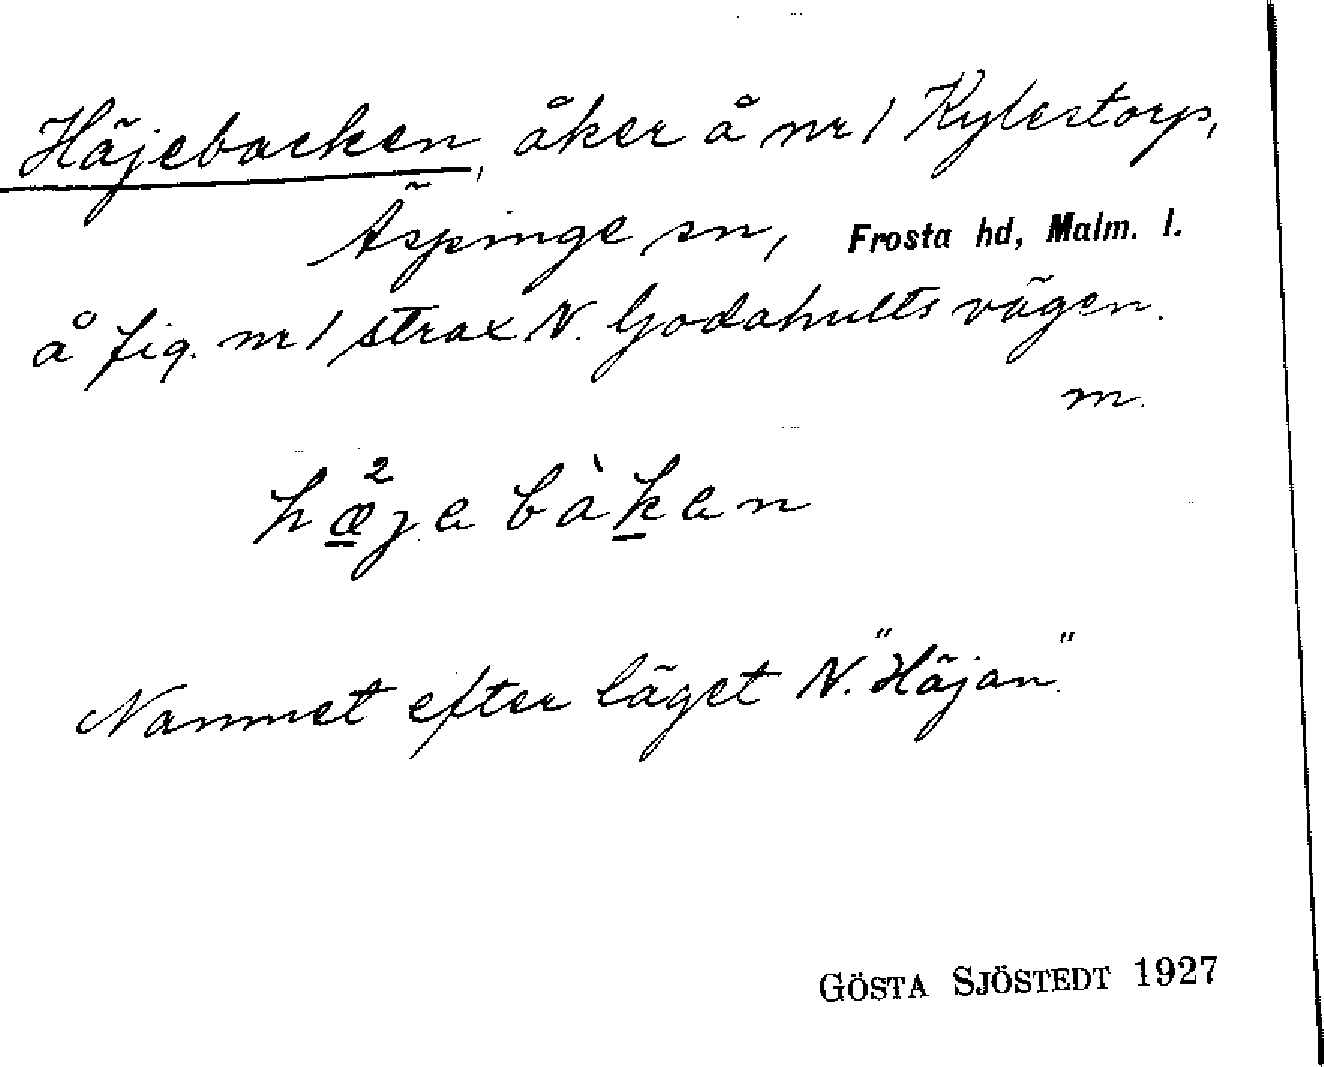 Häjebacken, åker å nr 1 Kylestorp,
Äspinge sn, Frosta hd, Malm. l.
å fig. nr 1 strax N. Godahults vägen.
m.
hæ²jebàken
Namnet efter läget N. "Häjan".
GÖSTA SJÖSTEDT 1927